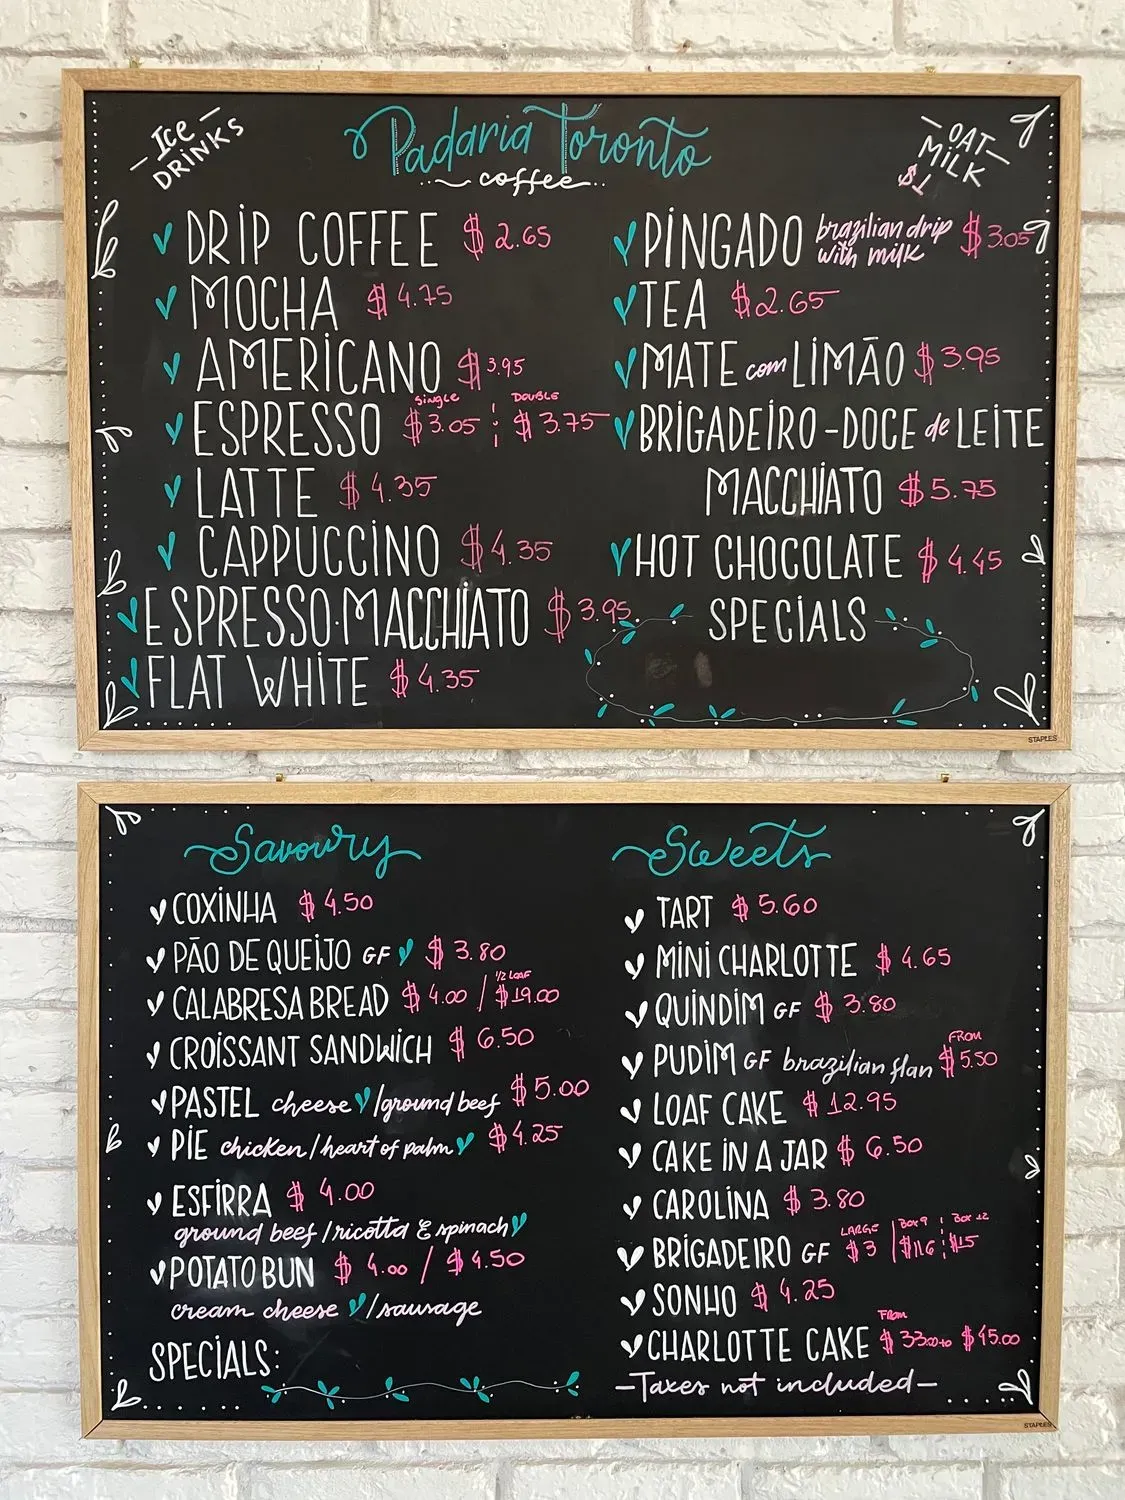 Ice
DRINKS
Padaria Toronto
coffee
OAT
MILK
$1
DRIP COFFEE $2.65
MOCHA $4.75
AMERICANO $3.95
single DOUBLE
ESPRESSO $3.05 $3.75
LATTE $4.35
CAPPUCCINO $4.35
ESPRESSO·MACCHIATO $3.95
FLAT WHITE $4.35
PINGADO brazilian drip $3.05
with milk
TEA $2.65
MATE com LIMÃO $3.95
BRIGADEIRO - DOCE de LEITE
MACCHIATO $5.75
HOT CHOCOLATE $4.45
SPECIALS
STAPLES
Savoury
COXINHA $4.50
PÃO DE QUEIJO GF $3.80
1/2 LOAF
CALABRESA BREAD $4.00 / $19.00
CROISSANT SANDWICH $6.50
PASTEL cheese / ground beef $5.00
PIE chicken / heart of palm $4.25
ESFIRRA $4.00
ground beef / ricotta & spinach
POTATO BUN $4.00 / $4.50
cream cheese / sausage
SPECIALS:
Sweets
TART $5.60
MINI CHARLOTTE $4.65
QUINDIM GF $3.80
FROM
PUDIM GF brazilian flan $5.50
LOAF CAKE $12.95
CAKE IN A JAR $6.50
CAROLINA $3.80
LARGE BOX 9 BOX 12
BRIGADEIRO GF $3 $11.6 $15
SONHO $4.25
FROM
CHARLOTTE CAKE $33.00 to $45.00
- Taxes not included -
STAPLES